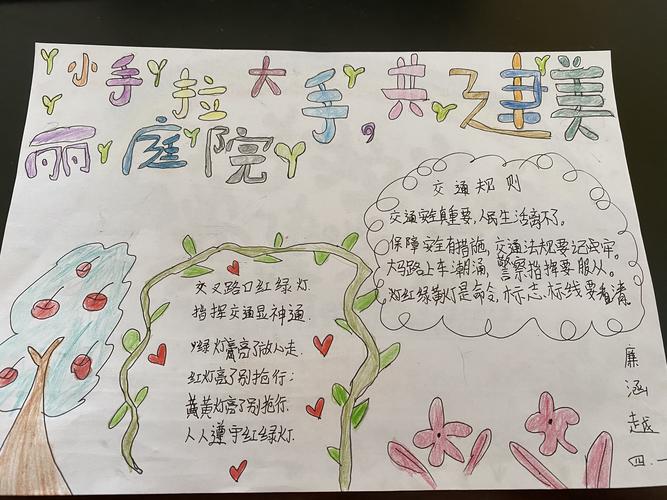 小手拉大手,共建美
丽庭院
交通规则
交通安全真重要,人民生活离不了。
保障安全有措施,交通法规要记牢。
大马路上车潮涌,警察指挥要服从。
灯红绿黄灯是命令,标志、标线要看清
交叉路口红绿灯
指挥交通显神通.
绿灯亮了放心走.
红灯亮了别抢行:
黄灯亮了别抢行.
人人遵守红绿灯.
廉涵越
四.一